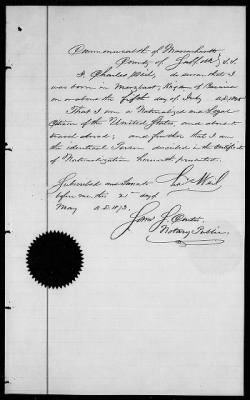 Commonwealth of Massachusetts
County of Suffolk } S.S.
I, Charles Weil, do swear that I
was born in Kingdom of Bavaria
on or about the fifth day of July A.D. 
That I am a Naturalized and Loyal
Citizen of the United States, and about to
travel abroad; and further that I am
the identical Person described in the Certificate
of Naturalization herewith presented.
Subscribed and Sworn to Cha Weil
before me this 21st day of
May A.D. 1873.
James J.
Notary Public.